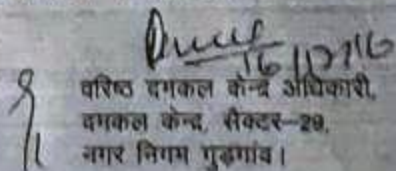 16/12/16
वरिष्ठ दमकल केन्द्र अधिकारी,
दमकल केन्द्र, सैक्टर-29,
नगर निगम गुड़गांव।